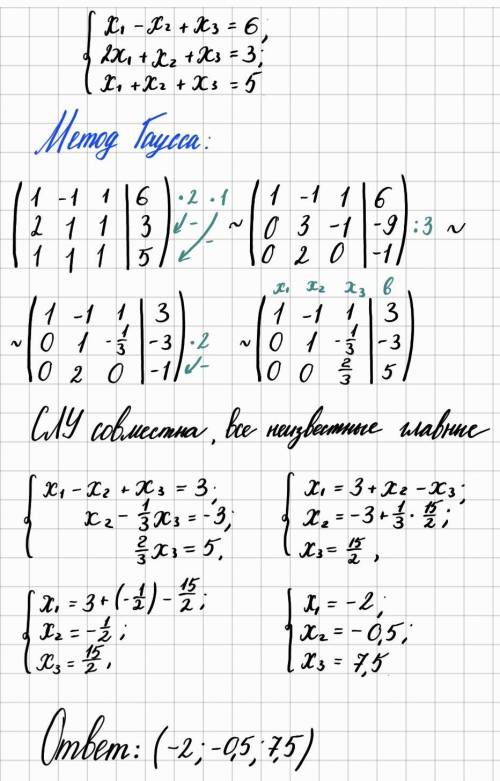 { x₁ - x₂ + x₃ = 6;
2x₁ + x₂ + x₃ = 3;
x₁ + x₂ + x₃ = 5
Метод Гаусса:
( 1 -1 1 | 6 ) ·2 ·1 ( 1 -1 1 | 6 )
( 2 1 1 | 3 ) - ~ ( 0 3 -1 | -9 ) :3 ~
( 1 1 1 | 5 ) - ( 0 2 0 | -1 )
x₁ x₂ x₃ в
( 1 -1 1 | 3 ) ( 1 -1 1 | 3 )
~ ( 0 1 -1/3 | -3 ) ·2 ~ ( 0 1 -1/3 | -3 )
( 0 2 0 | -1 ) - ( 0 0 2/3 | 5 )
СЛУ совместна, все неизвестные главные
{ x₁ - x₂ + x₃ = 3;
x₂ - 1/3 x₃ = -3;
2/3 x₃ = 5,
{ x₁ = 3 + x₂ - x₃;
x₂ = -3 + 1/3 · 15/2;
x₃ = 15/2,
{ x₁ = 3 + (-1/2) - 15/2;
x₂ = -1/2;
x₃ = 15/2,
{ x₁ = -2;
x₂ = -0,5;
x₃ = 7,5
Ответ: (-2; -0,5; 7,5)